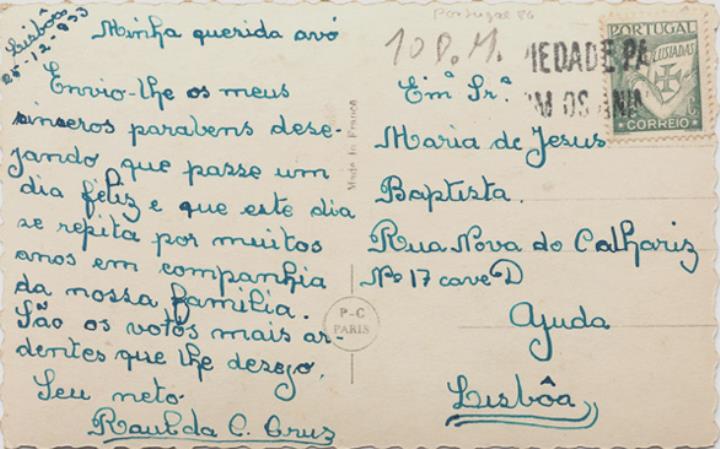 Lisbôa
25-12-933
Minha querida avó
Envio-lhe os meus
sinseros parabens dese-
jando que passe um
dia féliz e que este dia
se repita por muitos
anos em companhia
da nossa familia.
São os votos mais ar-
dentes que lhe desejo.
Seu neto
Raul da C. Cruz
Made in France
P-C
PARIS
Portugal 86
10 D.M.
IEDADE PA
M OS ANI
PORTUGAL
LUSIADAS
C
CORREIO
Emª Srª
Maria de Jesus
Baptista.
Rua Nova do Calhariz
Nº 17 cave D
Ajuda
Lisbôa